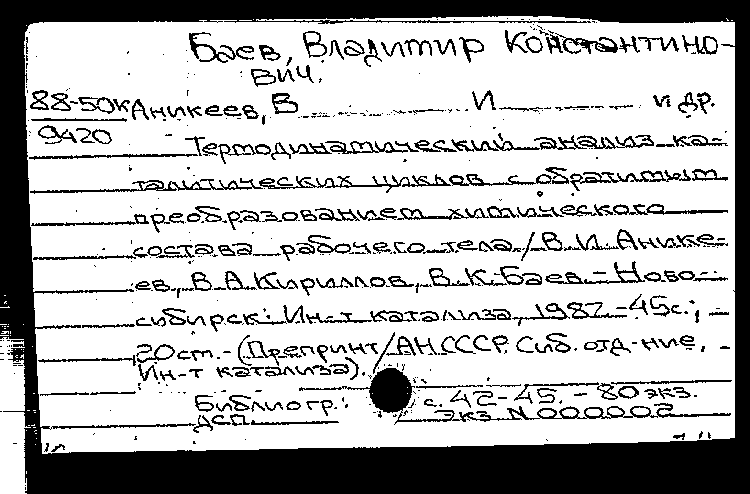 Баев, Владимир Константино-
вич.
88-50к Аникеев, В И и др.
9420
Термодинамический анализ ка-
талитических циклов с обратимым
преобразованием химического
состава рабочего тела/В.И.Анике-
ев, В.А.Кириллов, В.К.Баев.-Ново-
сибирск: Ин-т катализа, 1987.-45с.;
20см.-(Препринт/АН СССР. Сиб. отд-ние,
Ин-т катализа).
Библиогр.: с. 42-45. - 80 экз.
ДСП. экз N 000002